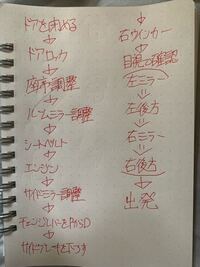 ドアを閉める
↓
ドアロック
↓
座席調整
↓
ルームミラー調整
↓
シートベルト
↓
エンジン
↓
サイドミラー調整
↓
チェンジレバーをPからD
↓
サイドブレーキを下ろす
↓
右ウインカー
↓
目視の確認
左ミラー
⇓
左後方
⇓
右ミラー
⇓
右後方
↓
出発